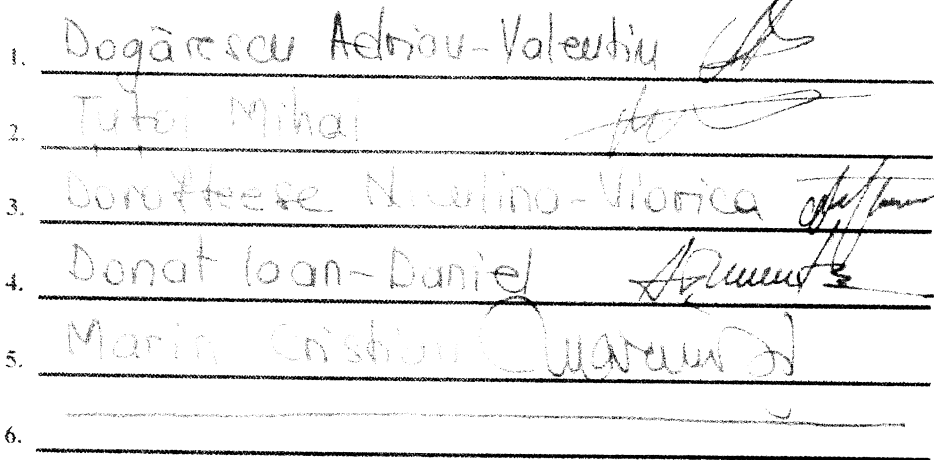 1. Dogărescu Adrian-Valentin
2. Țuțoi Mihai
3. Niculina-Viorica
4. Donat Ioan-Daniel
5. Marin Cristian
6.